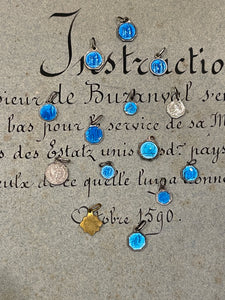 Instructio
sieur de Buzanval s'en
bas pour service de sa M
des Estatz unis pays
de ce quelle luy a donne
Octobre 1590.